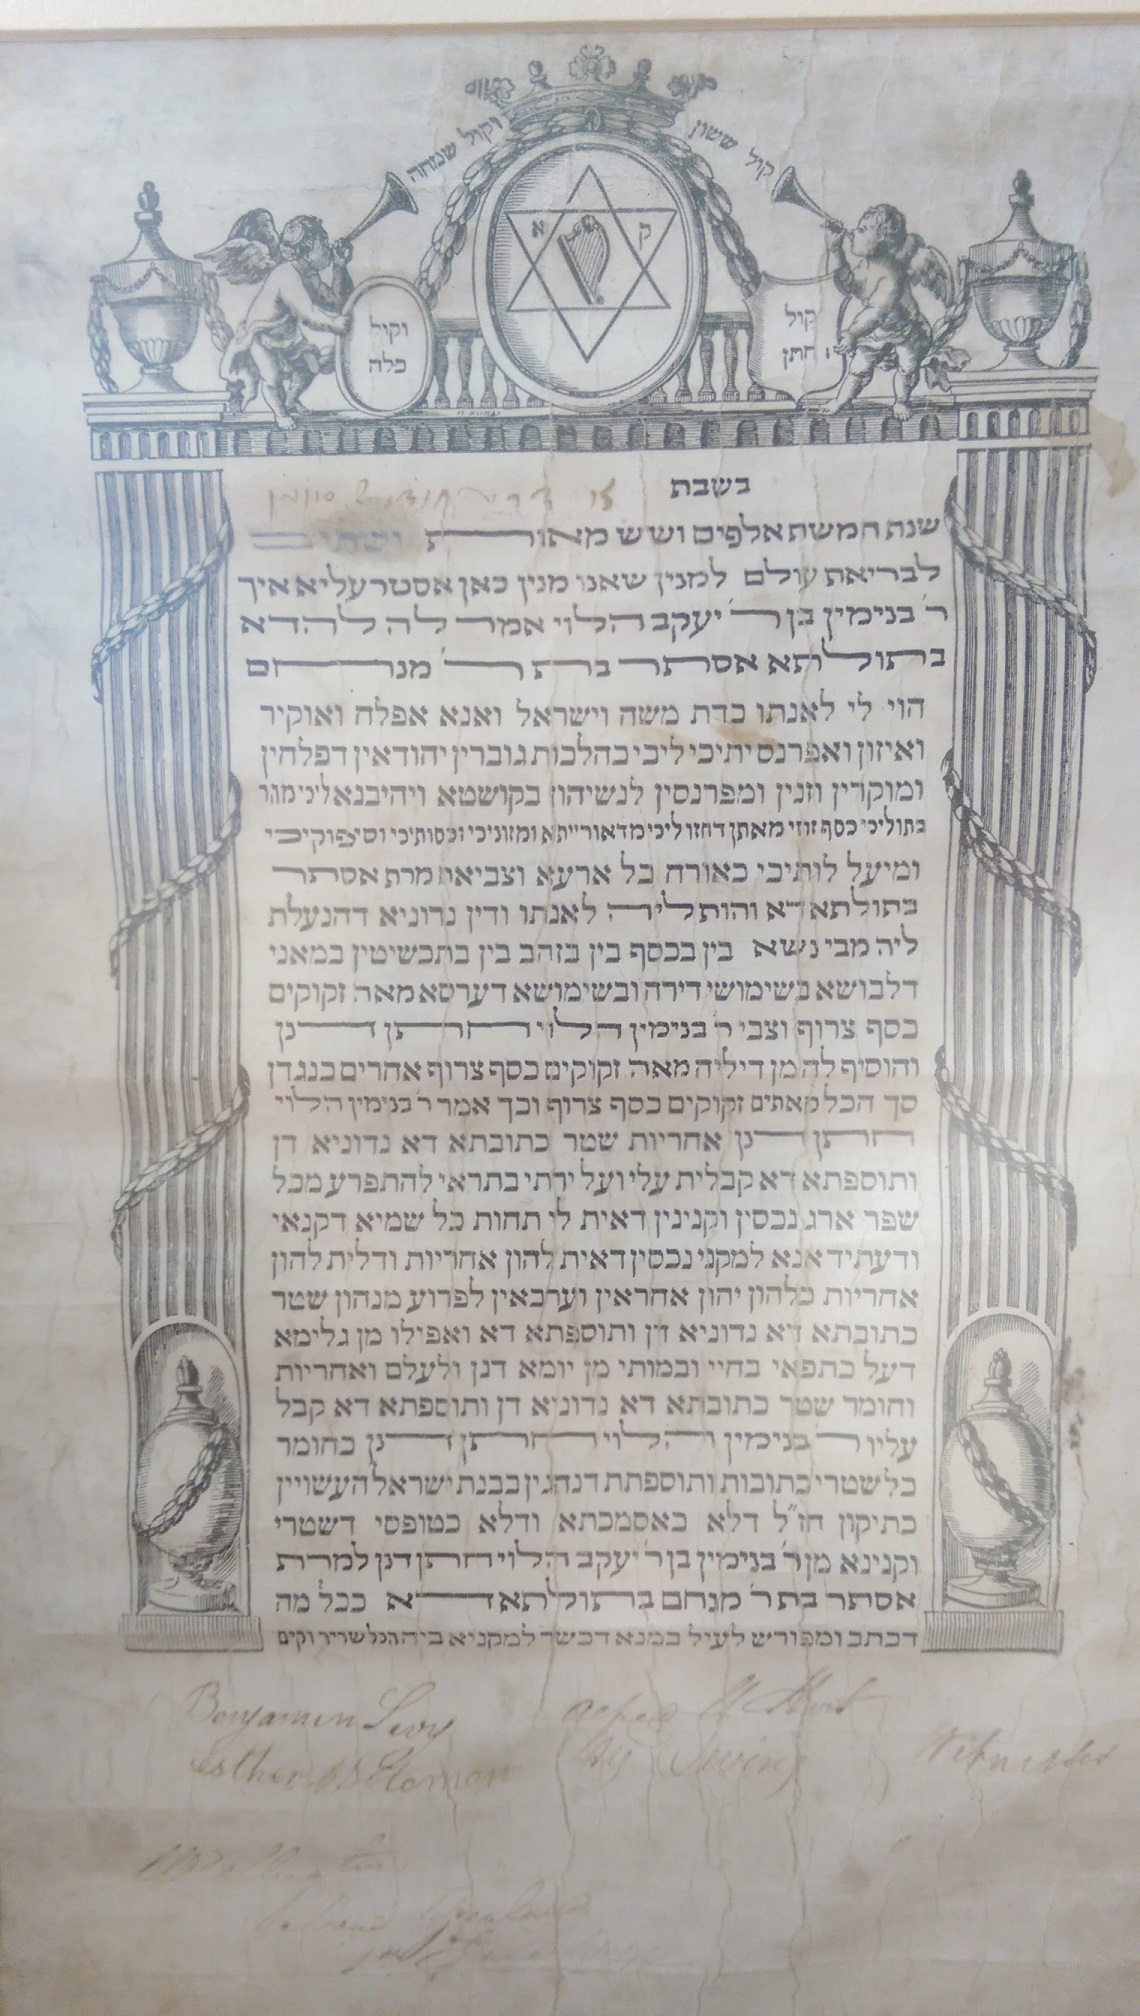 קול ששון
וקול שמחה
ק
א
קול
חתן
וקול
כלה
בשבת
שנת חמשת אלפים ושש מאות
לבריאת עולם למנין שאנו מנין כאן אסטרעליא איך
ר׳ בנימין בן ר׳ יעקב הלוי אמר לה להדא
בתולתא אסתר ברת ר׳ מנחם
הוי לי לאנתו כדת משה וישראל ואנא אפלח ואוקיר
ואיזון ואפרנס יתיכי ליכי כהלכות גוברין יהודאין דפלחין
ומוקרין וזנין ומפרנסין לנשיהון בקושטא ויהיבנא ליכי מוהר
בתוליכי כסף זוזי מאתן דחזו ליכי מדאורייתא ומזוניכי וכסותיכי וסיפוקיכי
ומיעל לותיכי כאורח כל ארעא וצביאת מרת אסתר
בתולתא דא והות ליה לאנתו ודין נדוניא דהנעלת
ליה מבי נשא בין בכסף בין בזהב בין בתכשיטין במאני
דלבושא בשימושי דירה ובשימושא דערסא מאה זקוקים
כסף צרוף וצבי ר׳ בנימין הלוי חתן דנן
והוסיף לה מן דיליה מאה זקוקים כסף צרוף אחרים כנגדן
סך הכל מאתים זקוקים כסף צרוף וכך אמר ר׳ בנימין הלוי
חתן דנן אחריות שטר כתובתא דא נדוניא דן
ותוספתא דא קבלית עלי ועל ירתי בתראי להתפרע מכל
שפר ארג נכסין וקנינין דאית לי תחות כל שמיא דקנאי
ודעתיד אנא למקני נכסין דאית להון אחריות ודלית להון
אחריות כלהון יהון אחראין וערבאין לפרוע מנהון שטר
כתובתא דא נדוניא דן ותוספתא דא ואפילו מן גלימא
דעל כתפאי בחיי ובמותי מן יומא דנן ולעלם ואחריות
וחומר שטר כתובתא דא נדוניא דן ותוספתא דא קבל
עליו ר׳ בנימין הלוי חתן דנן כחומר
כל שטרי כתובות ותוספתת דנהגין בבנת ישראל העשויין
כתיקון חז״ל דלא כאסמכתא ודלא כטופסי דשטרי
וקנינא מן ר׳ בנימין בן ר׳ יעקב הלוי חתן דנן למרת
אסתר בת ר׳ מנחם בתולתא דא ככל מה
דכתב ומפורש לעיל במנא דכשר למקניא ביה הכל שריר וקים
Benjamin Levy
Esther Solomon
Witnesses